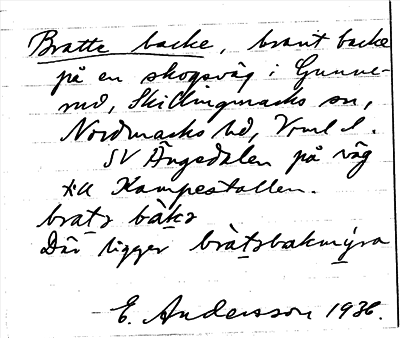 Bratte backe, brant backe
på en skogsväg i Gunne-
rud, Skillingmarks sn,
Nordmarks hd, Vrml l.
SV Ängsdalen på väg
till Kampestallen.
bratə bàkə
Där ligger bràtəbakmýra
E. Andersson 1936.